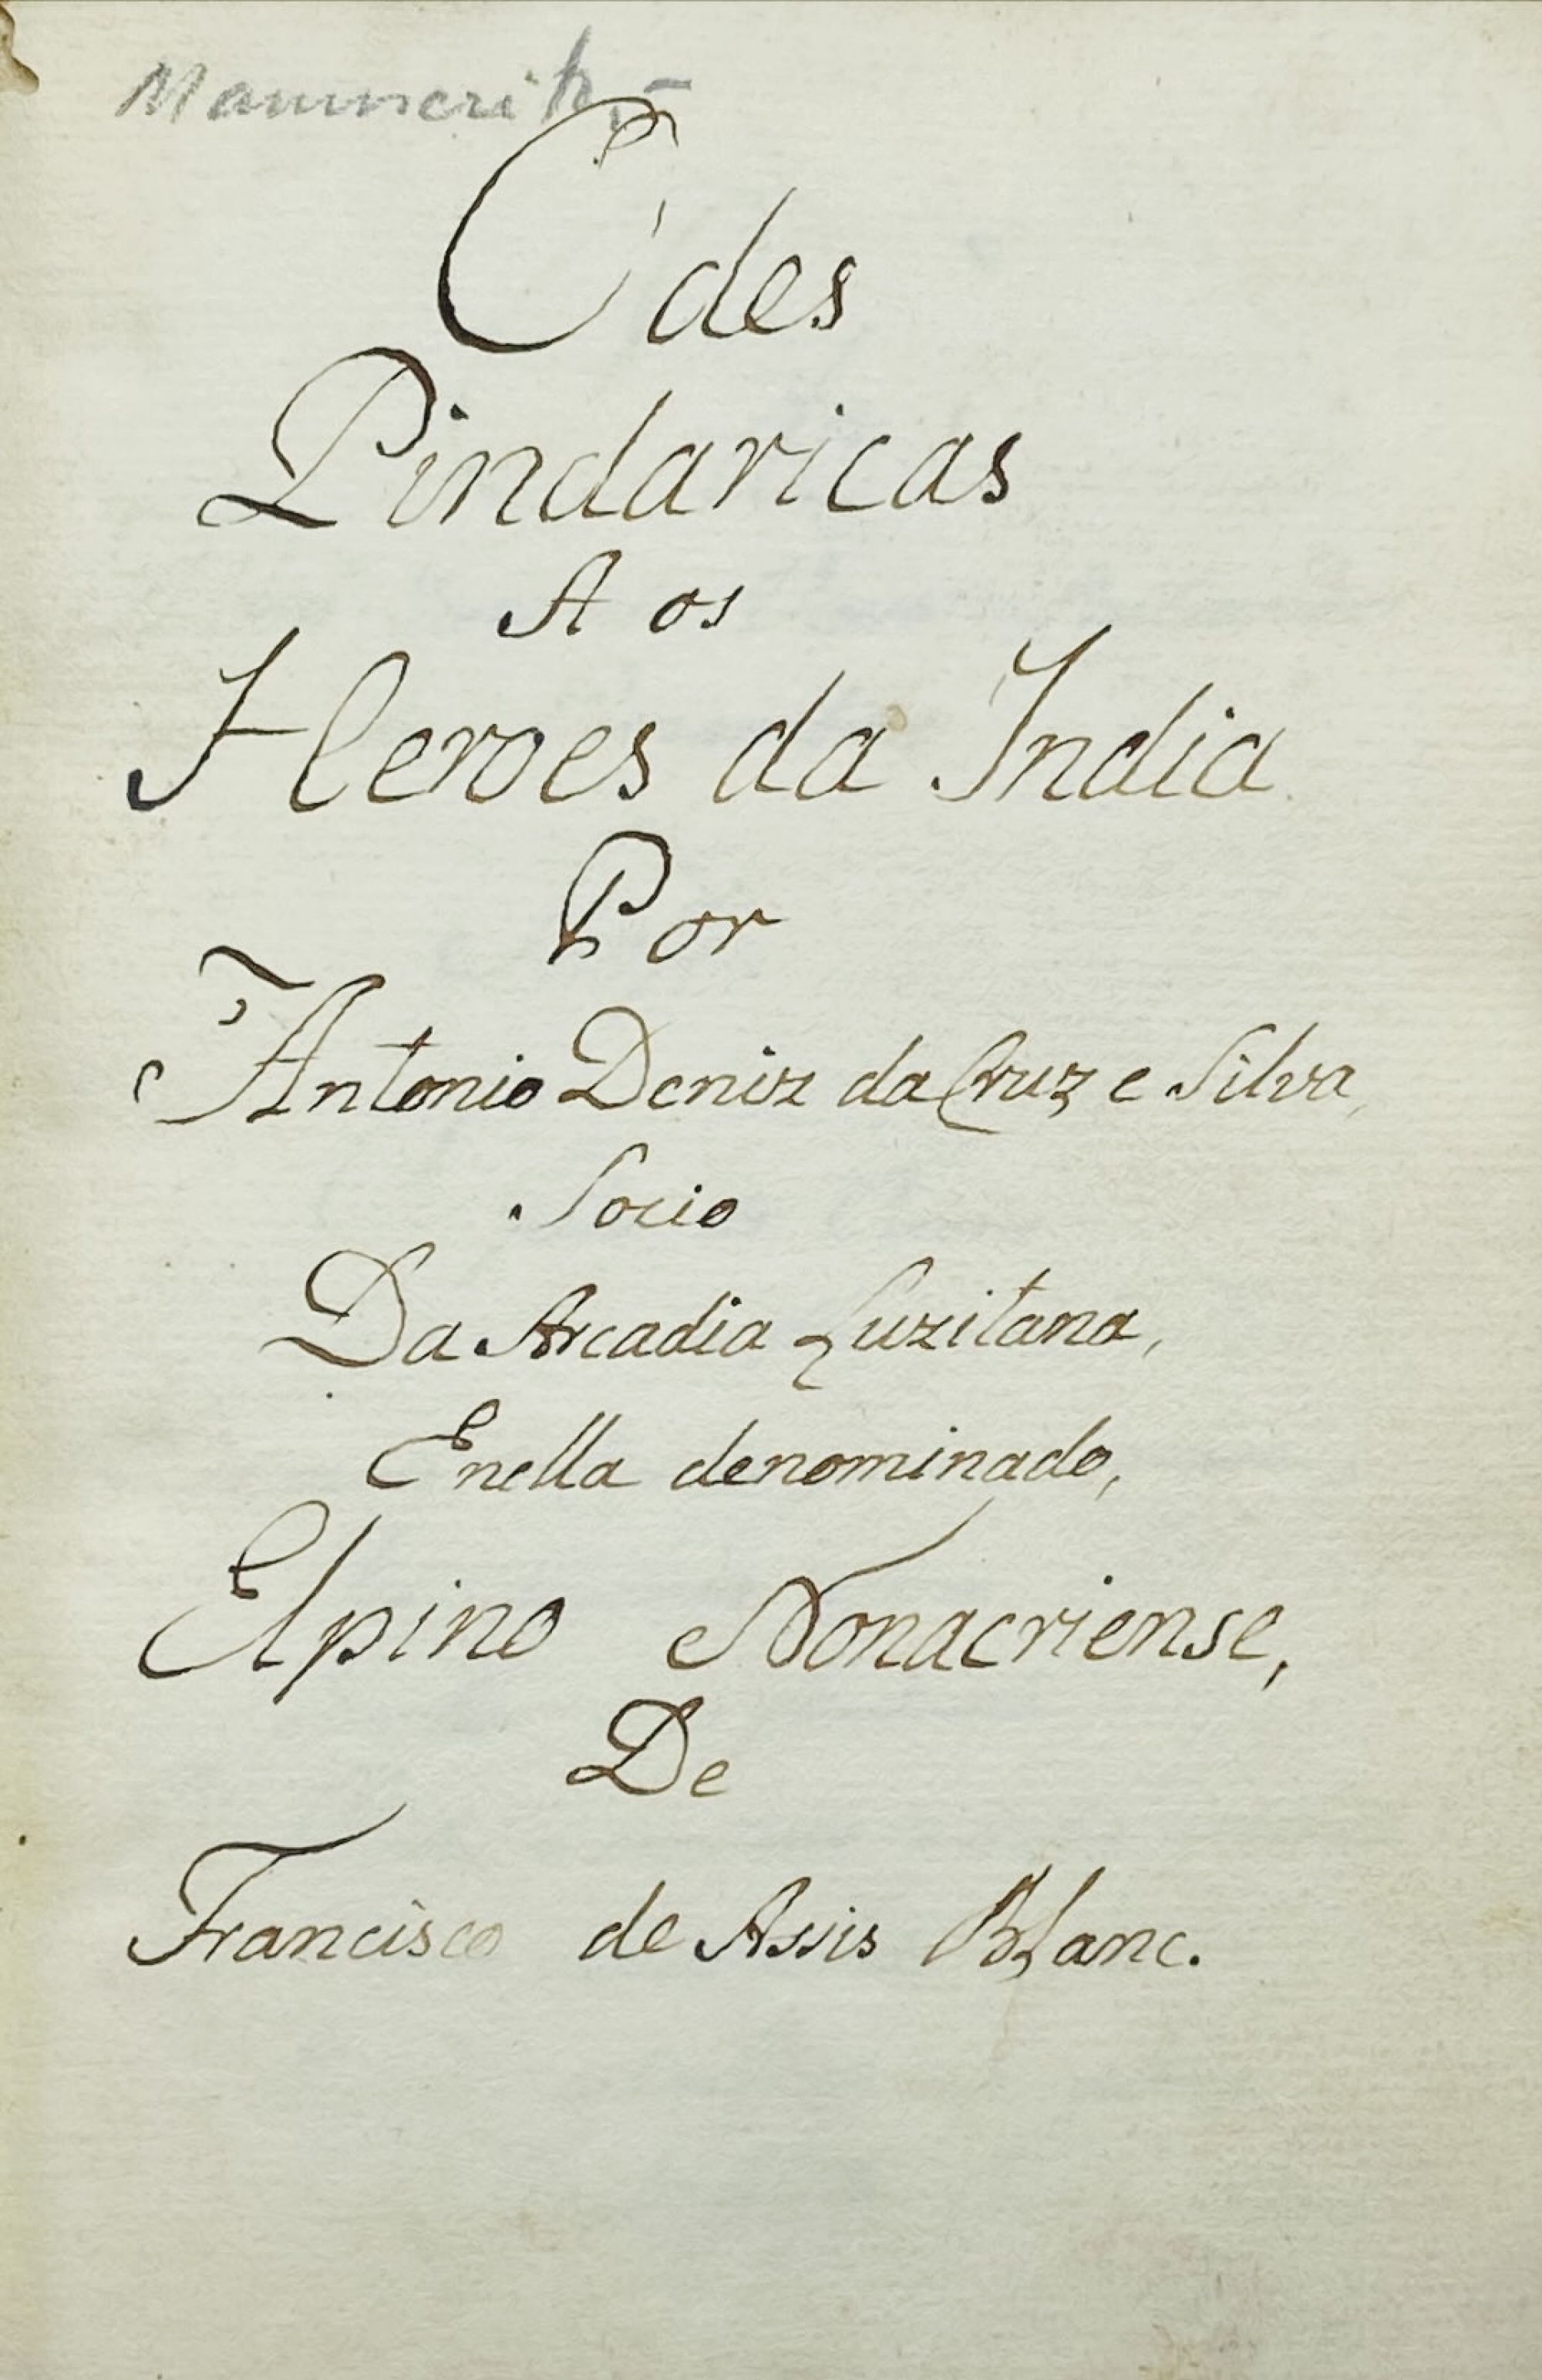 Manuscrito -
Odes
Pindaricas
A os
Heroes da India
Por
Antonio Deniz da Cruz e Silva,
Socio
Da Arcadia Luzitana,
Enella denominado,
Elpino Nonacriense,
De
Francisco de Assis Blanc.